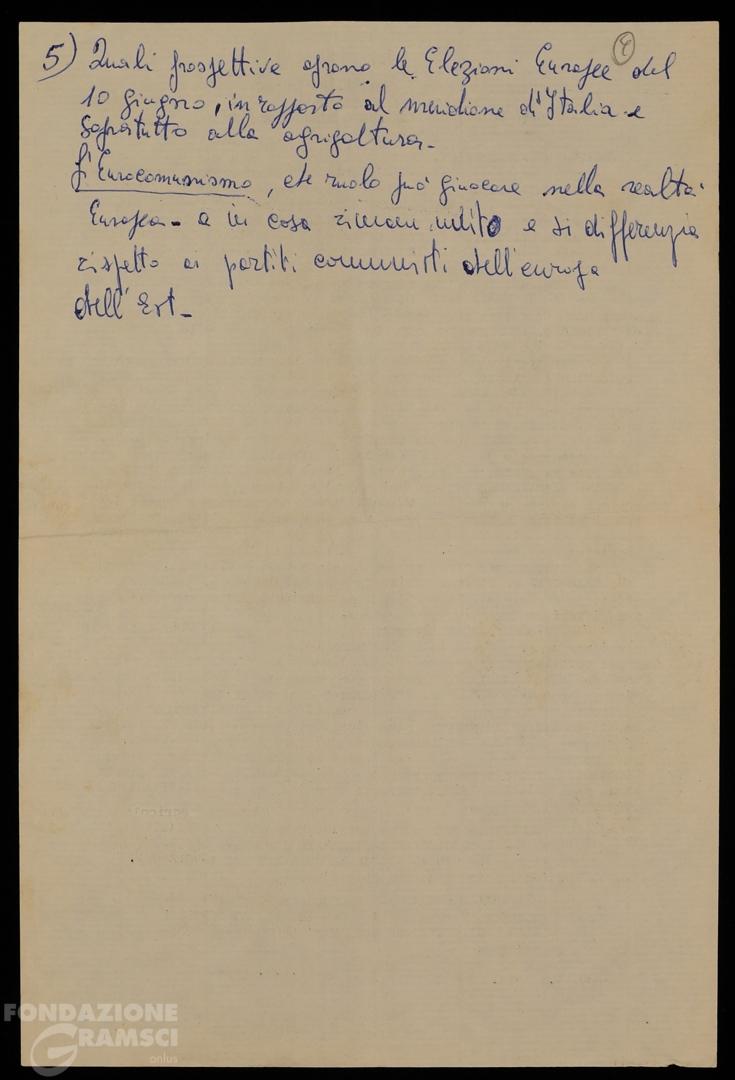 4
5) Quali prospettive oprono le Elezioni Europee del
10 giugno, in rapporto al meridione d'Italia e
soprattutto alla agrigoltura-
L'Eurocomunismo, che ruolo può giuocare nella realtà
Europea - a in cosa e si differenzia
rispetto ai partiti comunisti dell'europa
dell'Est-
FONDAZIONE
GRAMSCI
onlus